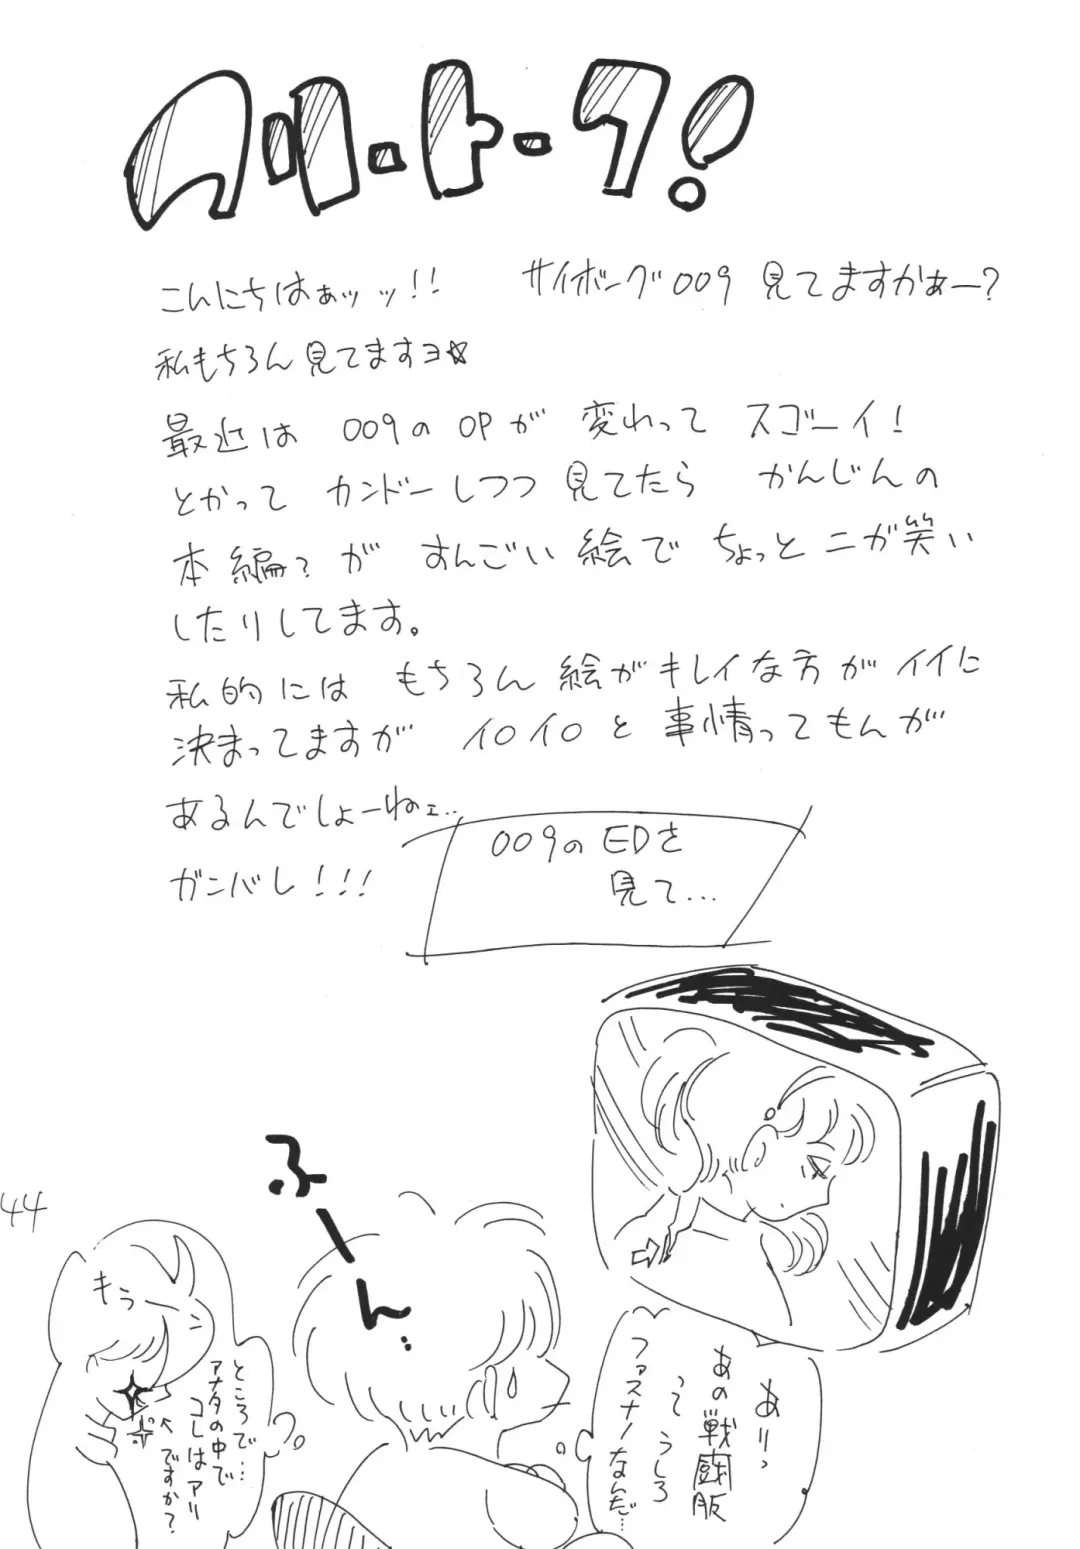 フリートーク!
こんにちはぁッッ!! サイボーグ009 見てますかぁー?
私もちろん見てますヨ☆
最近は 009の OPが 変わって スゴーイ!
とかって カンドーしつつ 見てたら かんじんの
本編?が すんごい 絵で ちょっと ニガ笑い
したりしてます。
私的には もちろん 絵がキレイな方が イイに
決まってますが イロイロと 事情ってもんが
あるんでしょーねェ…
ガンバレ!!!
009の EDを
見て…
ふーん…
ありっ
あの戦闘服
って うしろ
ファスナーなんだ…
もう
ところで…
アナタの中で
コレはアリ
ですか?
44